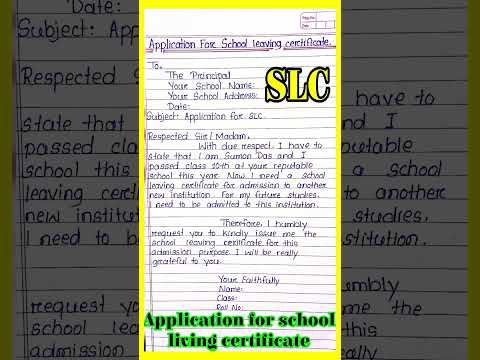 Application For School leaving certificate.
To,
The Principal
Your School Name:
Your School Address:
Date:
Subject: Application for SLC.
Respected Sir/Madam,
With due respect, I have to
state that I am Sumon Das and I
passed class 10th at your reputable
school this year. Now I need a school
leaving certificate for admission to another
new institution. For my future studies,
I need to be admitted to this institution.
Therefore, I humbly
request you to kindly issue me the
school leaving certificate for this
admission purpose. I will be really
grateful to you.
Your Faithfully
Name:
Class:
Roll No:
SLC
Application for school
living certificate
Date:
Subject: App
Respected
state that
passed cl
school this
leaving cer
new institu
I need to b
request you
school leav
admission
have to
nd I
putable
a school
to another
studies,
nstitution.
umbly
me the
for this